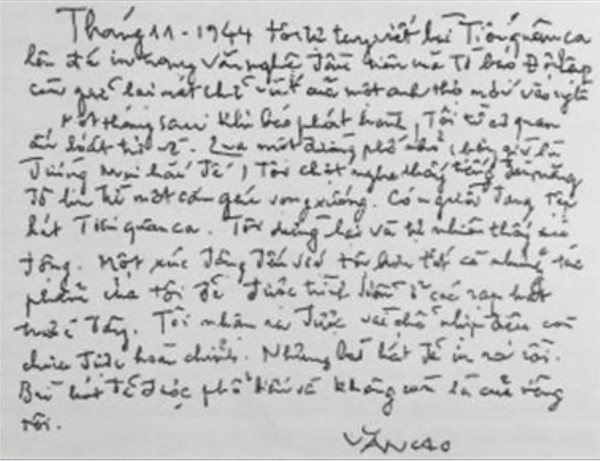 Tháng 11-1944 tôi tự tay viết bài Tiến quân ca
lên đá in trong văn nghệ đầu tiên của tờ báo Độc lập
còn giữ lại nét chữ viết của một anh thợ mới vào nghề
Một tháng sau khi báo phát hành, Tôi từ cơ quan
ấn loát trở về. Qua một đường phố nhỏ (bây giờ là
đường Mai hắc Đế), Tôi chợt nghe thấy tiếng đàn măng
đô lin từ một căn gác vọng xuống. Có người đang tập
hát Tiến quân ca. Tôi dừng lại và tự nhiên thấy xúc
động. Một xúc động đến với tôi hơn tất cả những tác
phẩm của tôi đã được trình diễn ở các rạp hát
trước đây. Tôi nhận ra được vài chỗ nhịp điệu còn
chưa được hoàn chỉnh. Nhưng bài hát đã in ra rồi.
Bài hát đã được phổ biến và không còn là của riêng
rồi.
VĂN CAO